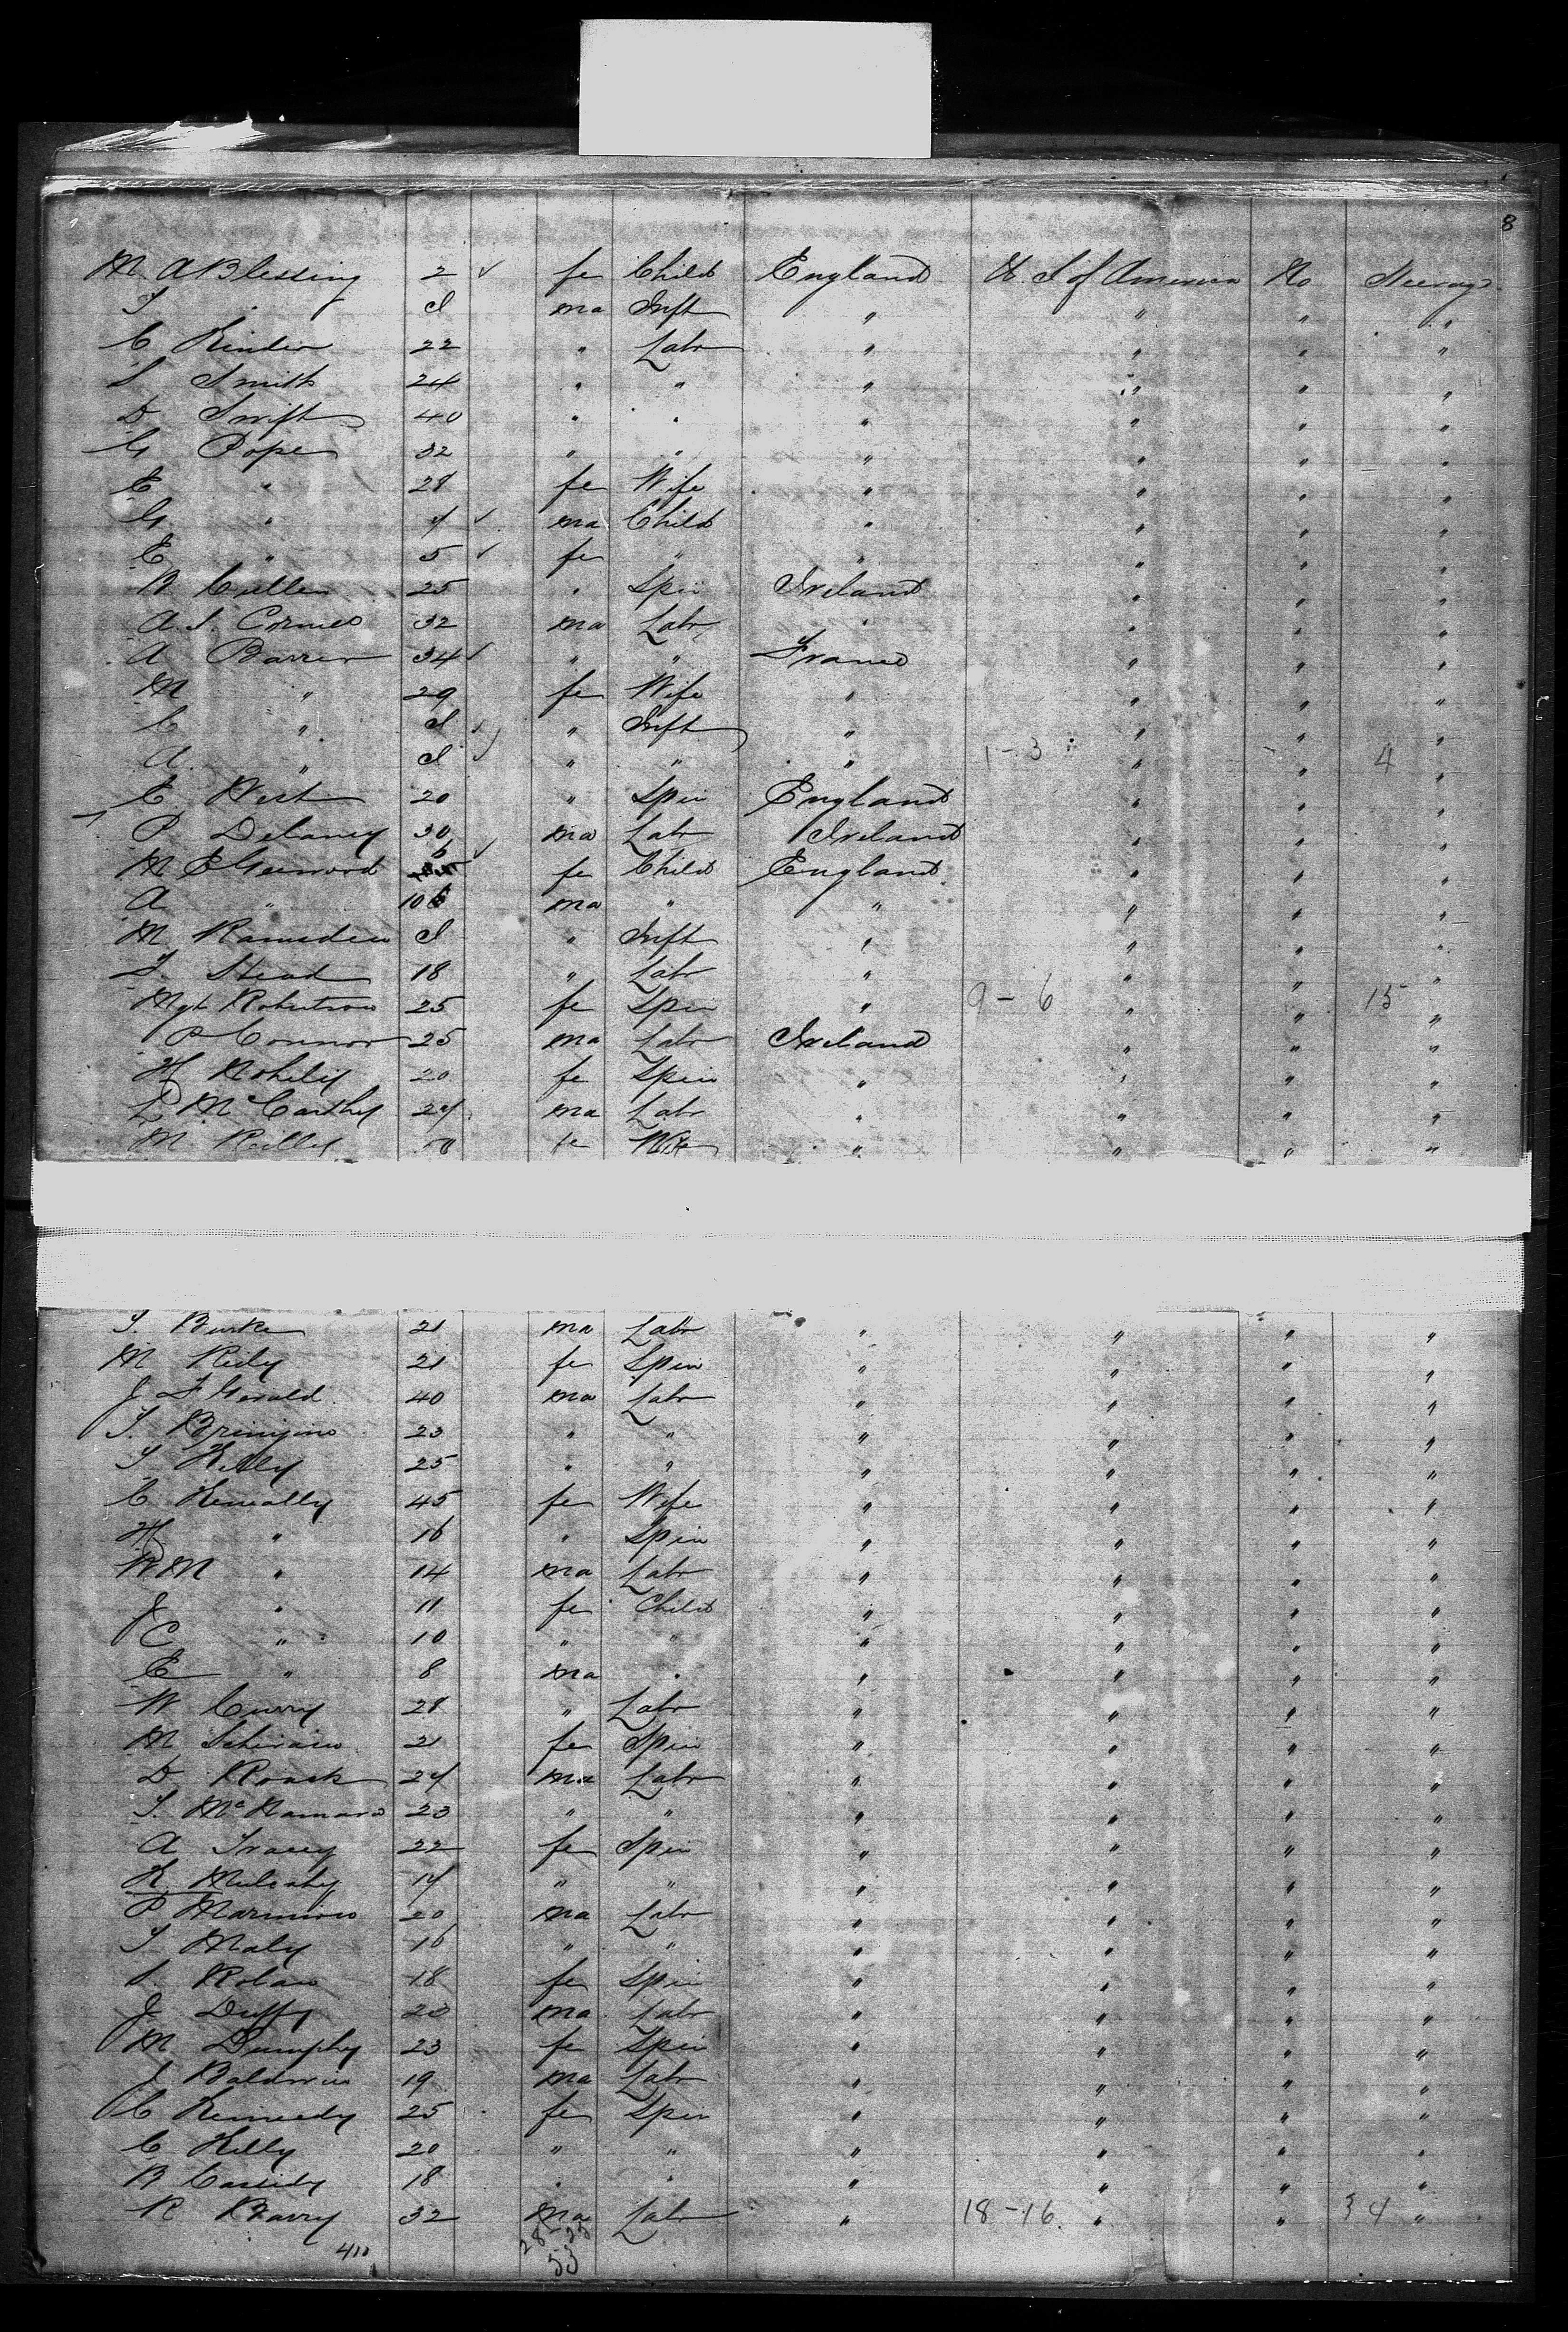 8
M. A Blessing 2 ✓ fe Child England U. S of America No Steerage
T " I ma Inft " " " "
C Kinder 22 " Labr " " " "
S Smith 24 " " " " " "
D Swift 40 " " " " " "
G Pope 32 " " " " " "
E " 28 fe Wife " " " "
G " 7 ✓ ma Child " " " "
E " 5 ✓ fe " " " " "
B Cullen 25 " Spin Ireland " " "
A. S. 32 ma Labr " " " "
A Barrer 34 ✓ " " France " " "
M " 29 fe Wife " " " "
C " I ✓ " Inft " " " "
A " I ✓ " " " 1-3 " " 4 "
E West 20 " Spin England " " "
P Delaney 30 ma Labr Ireland " " "
M E Greenwood 6 ✓ fe Child England " " "
A " 10 ma " " " " "
M Ramsden I " Inft " " " "
S. Stead 18 " Labr " " " "
Mgt Robertson 25 fe Spin " 9-6 " " 15 "
P Connor 25 ma Labr Ireland " " "
H 20 fe Spin " " " "
L McCarthy 27 ma Labr " " " "
M Reilly fe Wife " " " "
T. Burke 21 ma Labr " " " "
M Reily 21 fe Spin " " " "
J F Gerald 40 ma Labr " " " "
T. 23 " " " " " "
T Kelly 25 " " " " " "
C Keneally 45 fe Wife " " " "
H " 16 " Spin " " " "
W M " 14 ma Labr " " " "
J " 11 fe Child " " " "
C " 10 " " " " " "
E " 8 ma " " " " "
W Curry 28 " Labr " " " "
M 21 fe Spin " " " "
D Roach 27 ma Labr " " " "
T. McNamara 23 " " " " " "
A Tracey 22 fe Spin " " " "
K Mulcahy 17 " " " " " "
P 20 ma Labr " " " "
T Maly 16 " " " " " "
S. Rolan 18 fe Spin " " " "
J Duffy 20 ma Labr " " " "
M Dumphy 23 fe Spin " " " "
J Baldwin 19 ma Labr " " " "
C Kennedy 25 fe Spin " " " "
C Kelly 20 " " " " " "
B Cassidy 18 " " " " " "
R Barry 32 ma Labr " 18-16 " " 34 "
410 28 25
53